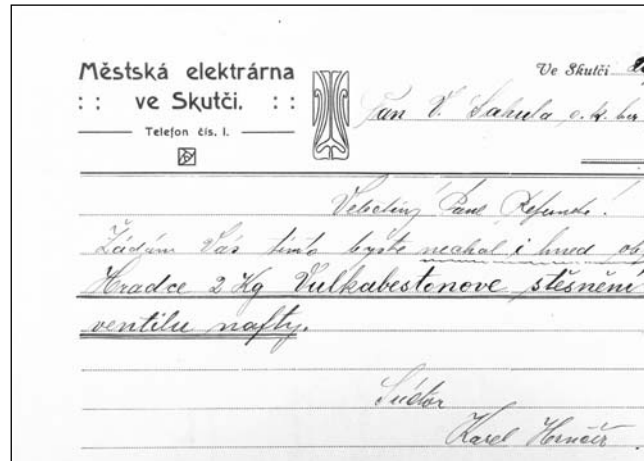 Městská elektrárna
: : ve Skutči. : :
Telefon čís. 1.
Ve Skutči
Pan V. Sahula c. k.
Veletěný Pane
Žádám Vás tímto byste nechal i hned
Hradce 2 Kg Vulkabestonove stěsnění
ventilu nafty.
Karel Hrnčíř.